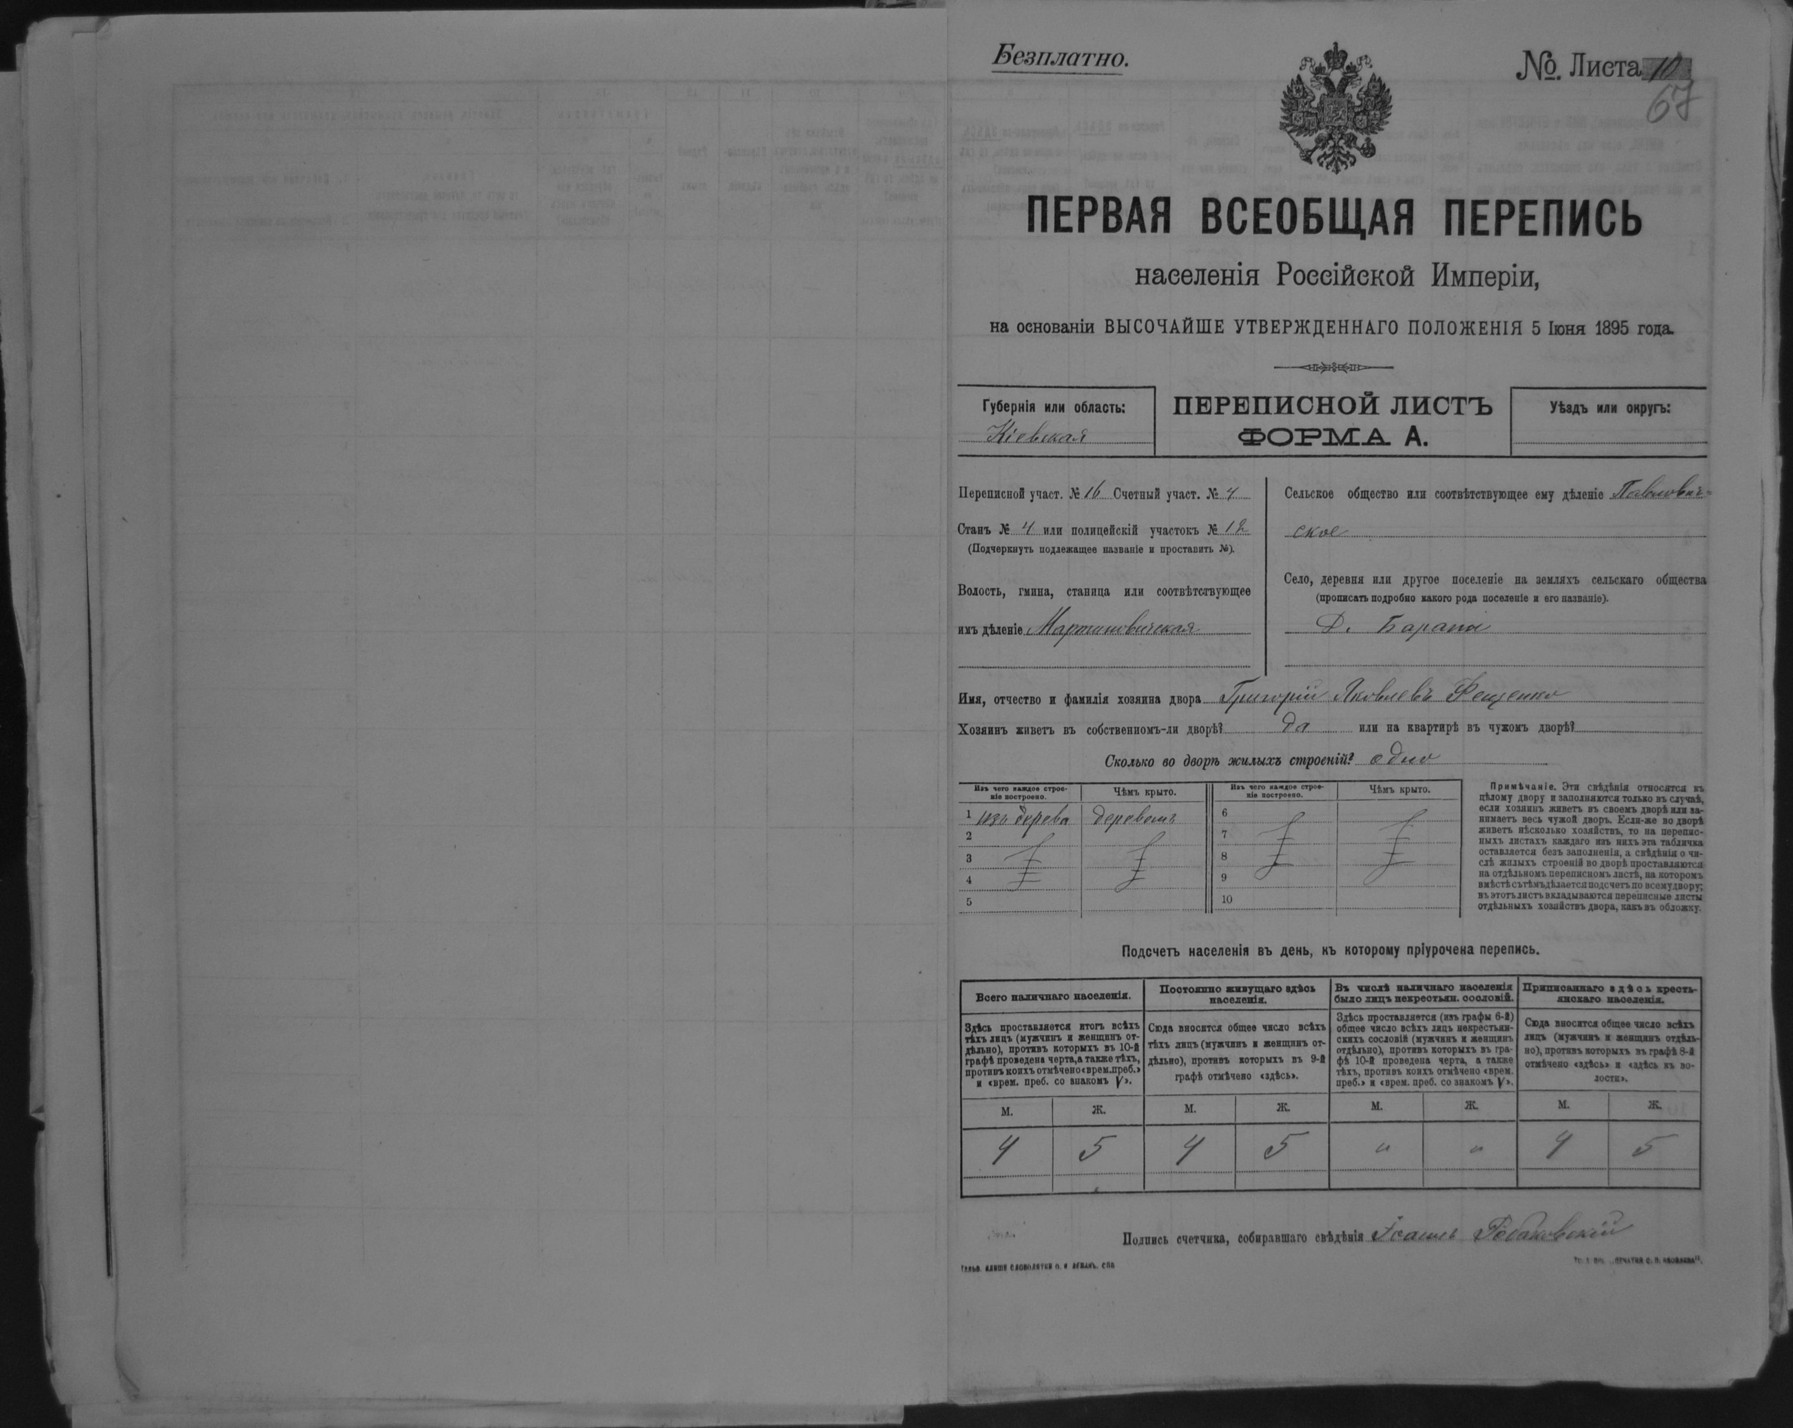 Безплатно.
№ Листа 10
67
ПЕРВАЯ ВСЕОБЩАЯ ПЕРЕПИСЬ
населенія Россійской Имперіи,
на основаніи ВЫСОЧАЙШЕ УТВЕРЖДЕННАГО ПОЛОЖЕНІЯ 5 Іюня 1895 года.
Губернія или область:
Кіевская
ПЕРЕПИСНОЙ ЛИСТЪ
ФОРМА А.
Уѣздъ или округъ:
Переписной участ. № 16 Счетный участ. № 4
Станъ № 4 или полицейскій участокъ № 12
(Подчеркнуть подлежащее названіе и проставить №).
Волость, гмина, станица или соотвѣтствующее
имъ дѣленіе Мартиновичская
Сельское общество или соотвѣтствующее ему дѣленіе Павлович-
ское
Село, деревня или другое поселеніе на земляхъ сельскаго общества
(прописать подробно какого рода поселеніе и его названіе).
Д. Бараны
Имя, отчество и фамилія хозяина двора Григорій Яковлевъ Фещенко
Хозяинъ живетъ въ собственномъ-ли дворѣ? да или на квартирѣ въ чужомъ дворѣ?
Сколько во дворѣ жилыхъ строеній? одно
Изъ чего каждое строе-
ніе построено.
Чѣмъ крыто.
1 изъ дерева деревомъ
2
3
4
5
Изъ чего каждое строе-
ніе построено.
Чѣмъ крыто.
6
7
8
9
10
Примѣчаніе. Эти свѣдѣнія относятся къ
цѣлому двору и заполняются только въ случаѣ,
если хозяинъ живетъ въ своемъ дворѣ или за-
нимаетъ весь чужой дворъ. Если-же во дворѣ
живетъ нѣсколько хозяйствъ, то на перепис-
ныхъ листахъ каждаго изъ нихъ эта табличка
оставляется безъ заполненія, а свѣдѣнія о чи-
слѣ жилыхъ строеній во дворѣ проставляются
на отдѣльномъ переписномъ листѣ, на которомъ
вмѣстѣ съ тѣмъ дѣлается подсчетъ по всему двору;
въ этотъ листъ вкладываются переписные листы
отдѣльныхъ хозяйствъ двора, какъ въ обложку.
Подсчетъ населенія въ день, къ которому пріурочена перепись.
Всего наличнаго населенія.
Здѣсь проставляется итогъ всѣхъ
тѣхъ лицъ (мужчинъ и женщинъ от-
дѣльно), противъ которыхъ въ 10-й
графѣ проведена черта, а также тѣхъ,
противъ коихъ отмѣчено «врем. преб.»
и «врем. преб. со знакомъ V».
Постоянно живущаго здѣсь
населенія.
Сюда вносится общее число всѣхъ
тѣхъ лицъ (мужчинъ и женщинъ от-
дѣльно), противъ которыхъ въ 9-й
графѣ отмѣчено «здѣсь».
Въ числѣ наличнаго населенія
было лицъ некрестьян. сословій.
Здѣсь проставляется (изъ графы 6-й)
общее число всѣхъ лицъ некрестьян-
скихъ сословій (мужчинъ и женщинъ
отдѣльно), противъ которыхъ въ гра-
фѣ 10-й проведена черта, а также
тѣхъ, противъ коихъ отмѣчено «врем.
преб.» и «врем. преб. со знакомъ V».
Приписаннаго здѣсь кресть-
янскаго населенія.
Сюда вносится общее число всѣхъ
лицъ (мужчинъ и женщинъ отдѣль-
но), противъ которыхъ въ графѣ 8-й
отмѣчено «здѣсь» и «здѣсь въ во-
лости».
М. Ж. М. Ж. М. Ж. М. Ж.
4 5 4 5 „ „ 4 5
Подпись счетчика, собиравшаго свѣдѣнія